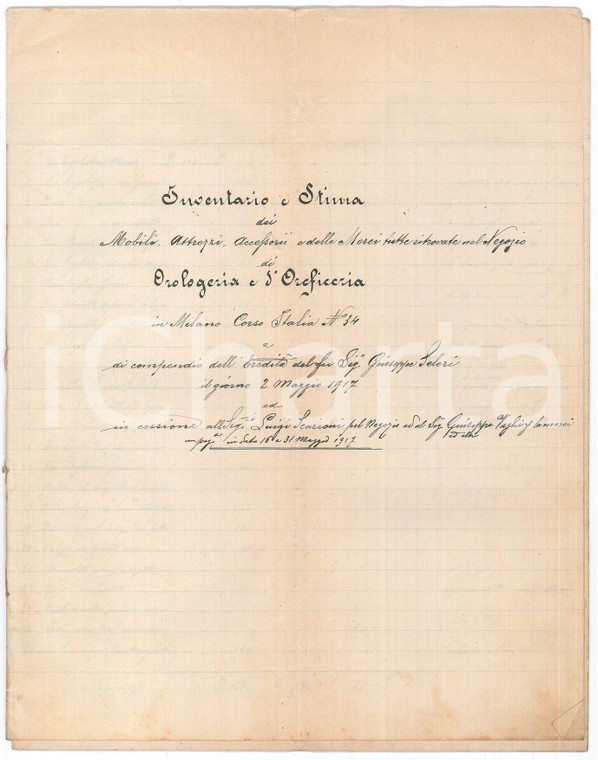 Inventario e Stima
dei
Mobili, Attrezzi, Accessorii e delle Merci tutte ritrovate nel Negozio
di
Orologeria e d'Oreficeria
in Milano Corso Italia No 34
e
di compendio dell'Eredità del fu Sig. Giuseppe Seleri
il giorno 2 Maggio 1917
ed
in cessione alli Sigri Luigi Scarioni pel Negozio ed al Sig. Giuseppe
in data 16 e 31 Maggio 1917
iCharta